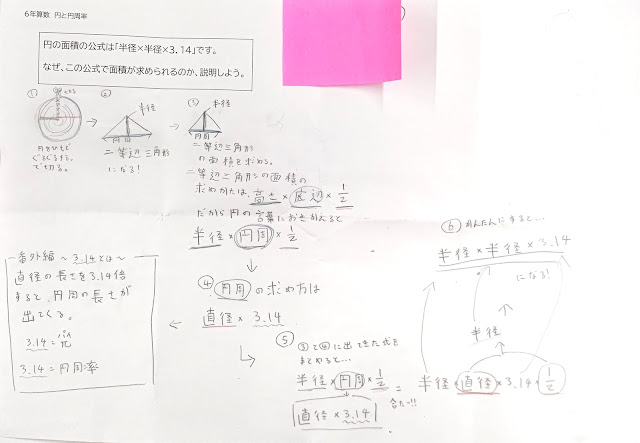 6年算数 円と円周率
円の面積の公式は「半径×半径×3.14」です。
なぜ、この公式で面積が求められるのか、説明しよう。
①
切る
円をひもで
ぐるぐるする。
で切る。
②
半径
円周
二等辺三角形
になる!
③
半径
円周
二等辺三角形
の面積を求める。
二等辺三角形の面積の
求めかたは、高さ×底辺×1/2
だから円の言葉におきかえると
半径×円周×1/2
④ 円周の求め方は
直径×3.14
番外編 ~3.14とは~
直径の長さを3.14倍
すると、円周の長さが
出てくる。
パイ
3.14=π
3.14=円周率
⑤ ③と④に出てきた式を
まとめると…
半径×円周×1/2
直径×3.14
= 半径×直径×3.14×1/2
合たっ!!
半径
⑥ かんたんにすると…
半径×半径×3.14
になる!